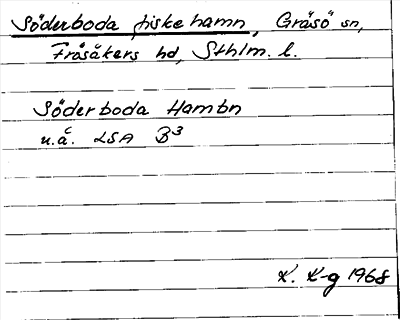 Söderboda fiskehamn, Gräsö sn,
Frösåkers hd, Sthlm. l.
Söderboda Hambn
u.å. LSA B3
K. K-g 1968